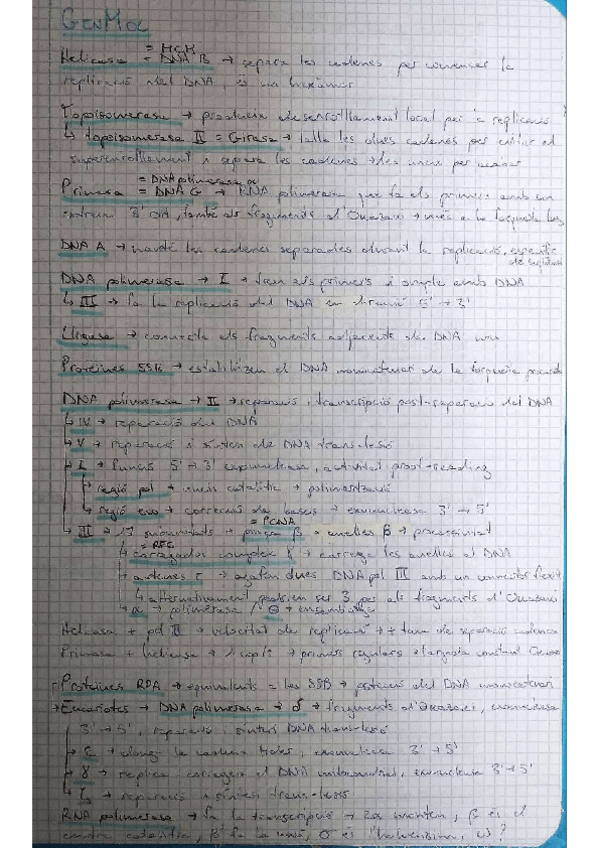 GENMOL
Helicasa = DNA B = MCM → separa les cadenes per començar la
replicació del DNA, és un hexàmer
Topoisomerasa → produeix desenrotllament local per la replicació
↳ topoisomerasa II = Girasa → talla les dues cadenes per evitar el
superenrotllament i separa les cadenes
Primasa = DNA G = DNA polimerasa α → RNA polimerasa que fa els primers amb un
extrem 3' OH, també als fragments d'Okazaki
DNA A → manté les cadenes separades durant la replicació,
DNA polimerasa → I → treu els primers i omple amb DNA
↳ III → fa la replicació del DNA en direcció 5' → 3'
Lligasa → connecta els fragments adjacents de DNA
Proteïnes SSB → estabilitzen el DNA monocatenari de la forqueta
DNA polimerasa → II → reparació i transcripció post-reparació del DNA
↳ IV → reparació del DNA
↳ V → reparació i síntesi de DNA trans-lesió
↳ I → funció 5' → 3' exonucleasa, activitat proof-reading
regió pol → nucli catalític → polimerització
↳ regió exo → correcció de bases → exonucleasa 3' → 5'
↳ III → 13 subunitats → pinça β = PCNA = anelles β → processivitat
↳ carregador complex γ = RFC → carrega les anelles al DNA
↳ proteïnes τ → agafen dues DNA pol III amb un connector flexible
↳ alternativament podrien ser 3 per als fragments d'Okazaki
↳ α → polimerasa / θ → ensamblatge
Helicasa + pol III → velocitat de replicació → + taxa de separació cadenes
Primasa + helicasa → → primers regulars
Proteïnes RPA → equivalents a les SSB → protecció del DNA monocatenari
Eucariotes → DNA polimerasa → δ → fragments d'Okazaki, exonucleasa
3' → 5', reparació i síntesi DNA trans-lesió
↳ ε → elonga la cadena líder, exonucleasa 3' → 5'
↳ γ → replica i corregeix el DNA mitocondrial, exonucleasa 3' → 5'
↳ ζ → reparació i síntesi trans-lesió
RNA polimerasa → fa la transcripció → 2α munten, β és el
centre catalític, β' fa la unió, σ és l'holoenzim, ω?